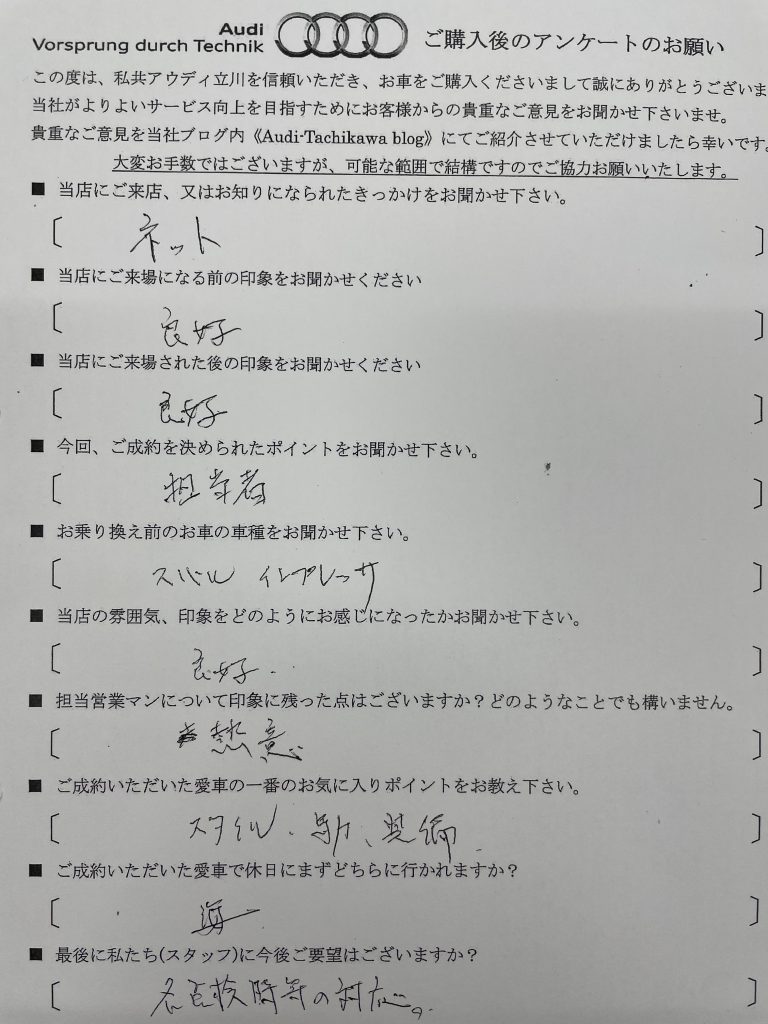 Audi
Vorsprung durch Technik
ご購入後のアンケートのお願い
この度は、私共アウディ立川を信頼いただき、お車をご購入くださいまして誠にありがとうござい
当社がよりよいサービス向上を目指すためにお客様からの貴重なご意見をお聞かせ下さいませ。
貴重なご意見を当社ブログ内《Audi-Tachikawa blog》にてご紹介させていただけましたら幸いです。
大変お手数ではございますが、可能な範囲で結構ですのでご協力お願いいたします。
■ 当店にご来店、又はお知りになられたきっかけをお聞かせ下さい。
〔 ネット 〕
■ 当店にご来場になる前の印象をお聞かせください
〔 良好 〕
■ 当店にご来場された後の印象をお聞かせください
〔 良好 〕
■ 今回、ご成約を決められたポイントをお聞かせ下さい。
〔 担当者 〕
■ お乗り換え前のお車の車種をお聞かせ下さい。
〔 スバル インプレッサ 〕
■ 当店の雰囲気、印象をどのようにお感じになったかお聞かせ下さい。
〔 良好. 〕
■ 担当営業マンについて印象に残った点はございますか？どのようなことでも構いません。
〔 熱意 〕
■ ご成約いただいた愛車の一番のお気に入りポイントをお教え下さい。
〔 スタイル、馬力、装備 〕
■ ご成約いただいた愛車で休日にまずどちらに行かれますか？
〔 海 〕
■ 最後に私たち(スタッフ)に今後ご要望はございますか？
〔 点検時等の対応。 〕